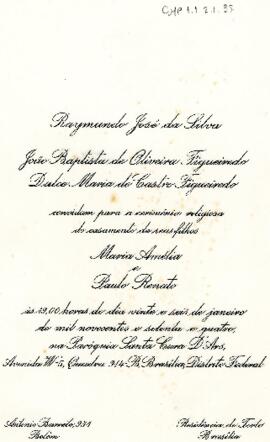 CMP 1.1.2.1.95
Raymundo José da Silva
João Baptista de Oliveira Figueiredo
Dulce Maria de Castro Figueiredo
convidam para a cerimônia religiosa
do casamento de seus filhos
Maria Amélia
e
Paulo Renato
às 19,00 horas do dia vinte e seis de janeiro
de mil novecentos e setenta e quatro,
na Paróquia Santa Cura D'Ars,
Avenida W-5, Quadra 914-B. Brasília, Distrito Federal
Antonio Barreto, 931
Belém
Residência do Torto
Brasília